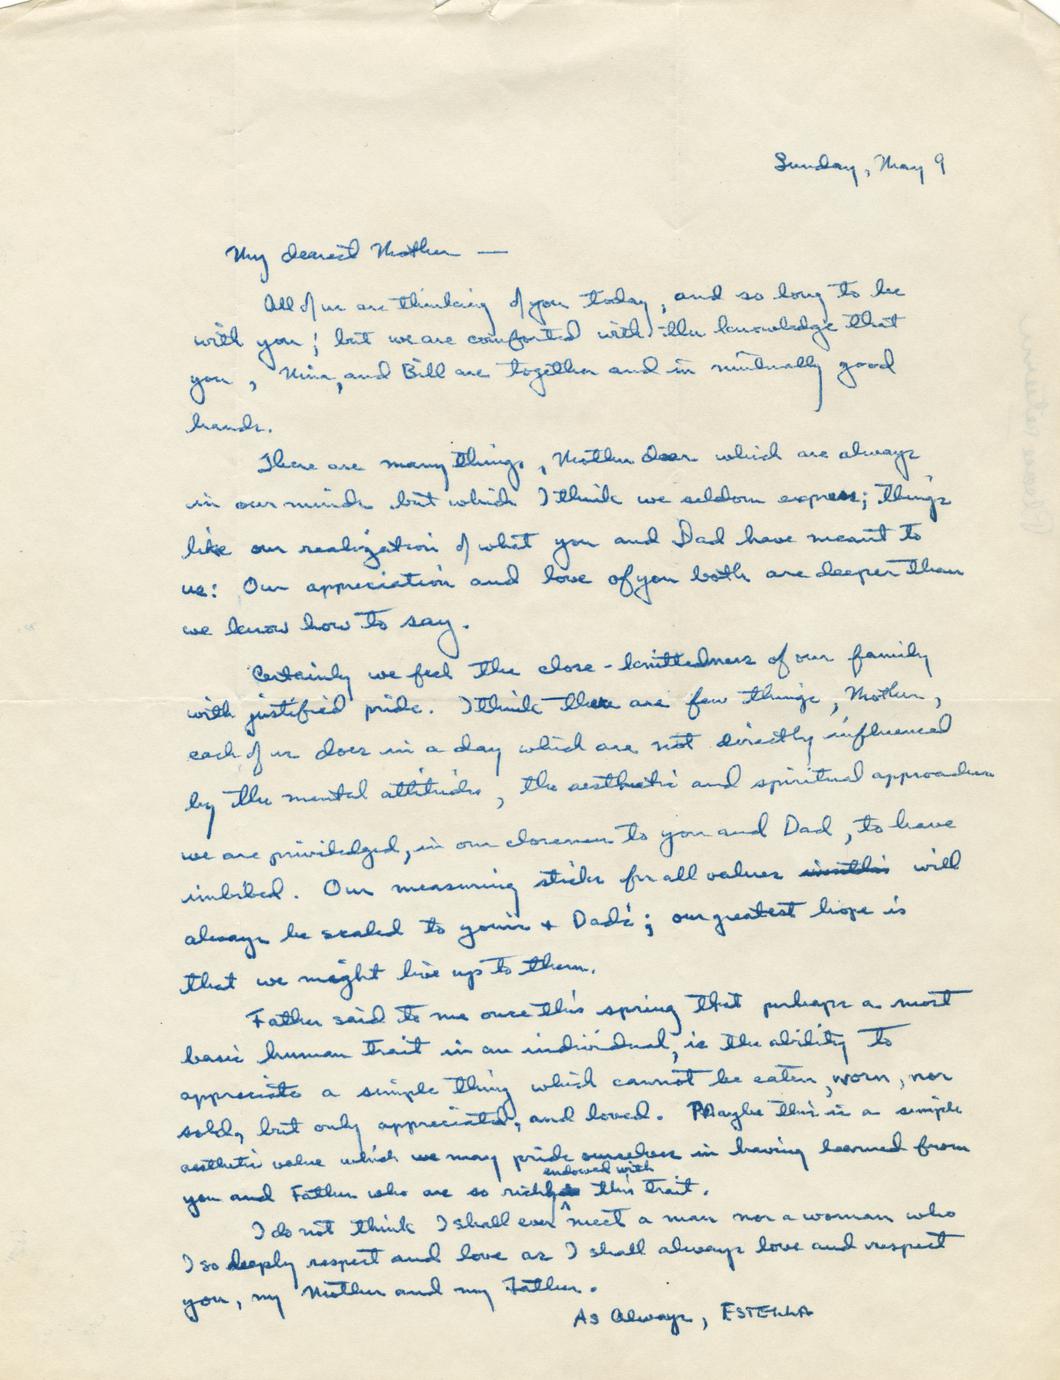 Sunday, May 9
My dearest Mother —
All of us are thinking of you today, and so long to be
with you; but we are comforted with the knowledge that
you, Nina, and Bill are together and in mutually good
hands.
There are many things, Mother dear which are always
in our minds but which I think we seldom express; things
like our realization of what you and Dad have meant to
us: Our appreciation and love of you both are deeper than
we know how to say.
Certainly we feel the close-knittedness of our family
with justified pride. I think there are few things, Mother,
each of us does in a day which are not directly influenced
by the mental attitudes, the aesthetic and spiritual approaches
we are priviledged, in our closeness to you and Dad, to have
imbibed. Our measuring sticks for all values will
always be scaled to your's + Dad's; our greatest hope is
that we might live up to them.
Father said to me once this spring that perhaps a most
basic human trait in an individual, is the ability to
appreciate a simple thing which cannot be eaten, worn, nor
sold, but only appreciated, and loved. Maybe this is a simple
aesthetic value which we may pride ourselves in having learned from
endowed with
you and Father who are so richly this trait.
I do not think I shall ever meet a man nor a woman who
I so deeply respect and love as I shall always love and respect
you, my Mother and my Father.
As Always, ESTELLA